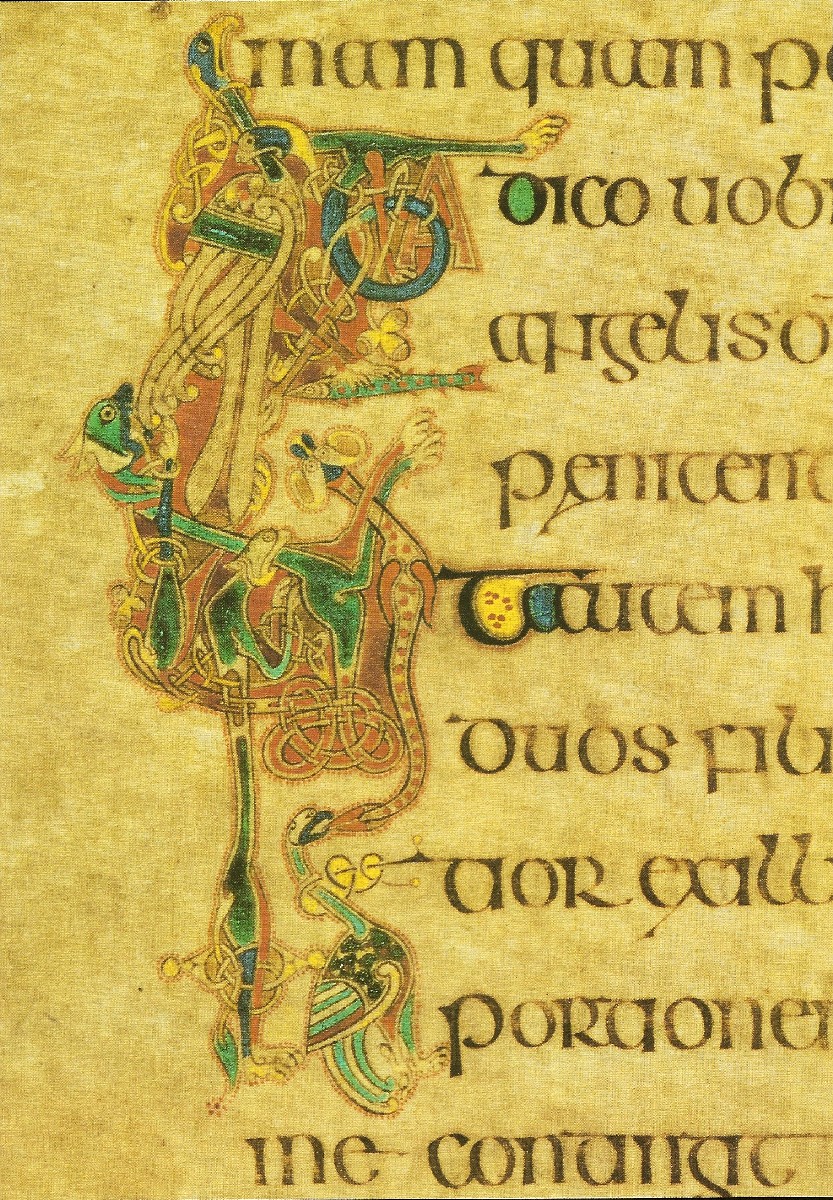 mam quam pe
ITA dico uobi
angelis d
penitent
Ait autem h
duos fili
tior ex ill
portione
me contingit